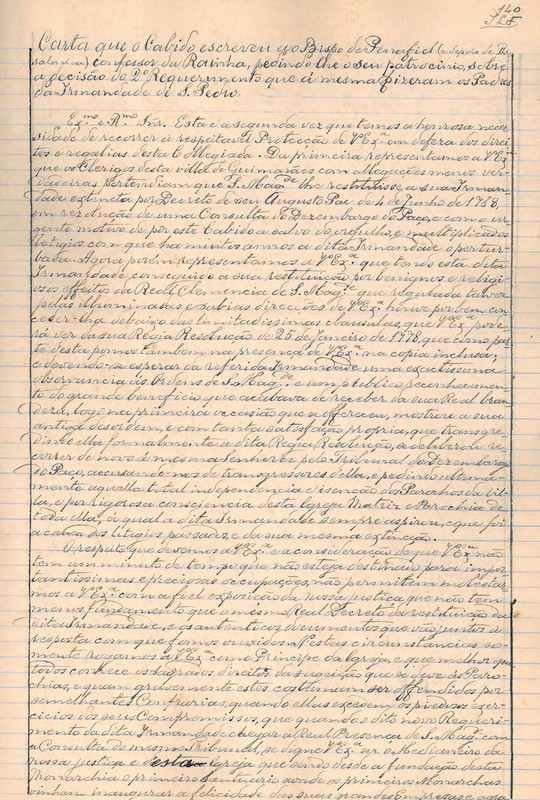 140
Carta que o Cabido escreveu ao Bispo de Penafiel (e depois de Thes
salonica) confessor da Rainha, pedindo lhe o seu patrocinio, sobre
a decisão do 2º Requerimento que á mesma fizeram os Padres
da Irmandade de S. Pedro.
Ex.mo e R.mo Snr. Esta é a segunda vez que temos a honrosa neces
sidade de recorrer á respeitavel Protecção de V.Ex.a em defeza dos direi
tos e regalias desta Collegiada. Da primeira representamos a V.Ex.a
que os Clerigos desta villa de Guimarães com allegações menos ver
dadeiras pertendiam que S. Mag.de lhe restituisse a sua Irman
dade extincta por Decreto de seu Augusto Pae de 4 de Junho de 1768,
em resolução de uma Consulta do Dezembargo do Paço, e com o ur
gente motivo de pôr este Cabido a salvo do orgulho, e multiplicados
litigios com que ha muitos annos a dita Irmandade o pertur
bava. Agora porém representamos a V.Ex.a que tendo esta dita
Irmandade conseguido a sua restituição por benignos e religi
osos effeitos da Real Clemencia de S. Mag.de que regulada talvez
pelas illuminadas e sabias direcções de V.Ex.a houve por bem con
ceder-lha debaixo das limitadissimas clausulas, que V.Ex.a pode
rá ver da sua Regia Resolução de 25 de Janeiro de 1778, que como par
te desta pomos tambem na presença de V.Ex.a na copia inclusa;
e devendo-se esperar da referida Irmandade uma exactissima
observancia ás Ordens de S. Mag.de e um publico reconhecimen
to do grande beneficio que acabava de receber da sua Real bran
dura, logo na primeira occasião que se offereceu, mostrou a sua
antiga desordem, e com tanta satisfação propria, que transgre
dindo ella formalmente a dita Regia Resolução, se delibera re
correr de novo á mesma Senhora pelo Tribunal do Dezembargo
do Paço, accusando-nos de transgressores della, e pedindo ultima
mente aquella total independencia e isenção dos Parochos da vil
la, e por rigorosa consequencia desta Igreja Matriz e Parochia de
toda ella, á qual a dita Irmandade sempre aspirou, e que foi
a causa dos litigios passados, e da sua mesma extincção.
O respeito que devemos a V.Ex.a e a consideração de que V.Ex.a não
tem um minuto de tempo que não esteja destinado para impor
tantissimas e preciosas occupações, não permittem molestar
mos a V.Ex.a com a fiel exposição da nossa justiça que não tem
menos fundamento que o mesmo Real Decreto da restituição da
dita Irmandade, e os autenticos documentos que vão juntos á
resposta com que fomos ouvidos. Nestas circumstancias so
mente rogamos a V.Ex.a como Principe da Igreja, e que melhor que
todos conhece os sagrados direitos da sugeição que se deve ás Paro
chias, e quam gravemente estes costumam ser offendidos por
semelhantes Confrarias, quando ellas excedem os piedosos exer
cicios dos seus Compromissos, que quando o dito novo Requeri
mento da dita Irmandade chegar á Real Presença de S. Mag.de com
a Consulta do mesmo Tribunal, se digne V.Ex.a ser o Medianeiro da
nossa justiça e desta Igreja que sendo desde a fundação desta
Monarchia o primeiro Santuario aonde os primeiros Monarchas
vinham inaugurar a felicidade das suas grandes Emprezas e